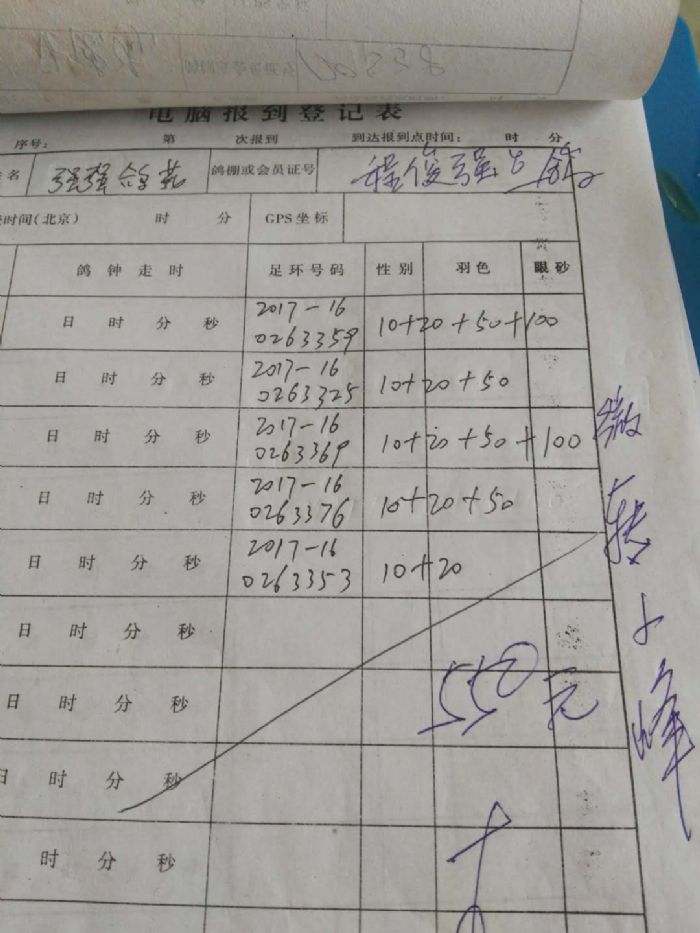 电脑报到登记表
序号： 第 次报到 到达报到点时间： 时 分
名 强强鸽苑 鸽棚或会员证号 程俊强
时间(北京) 时 分 GPS坐标
鸽钟走时 足环号码 性别 羽色 眼砂
日 时 分 秒 2017-16 0263359 10+20+50+100
日 时 分 秒 2017-16 0263325 10+20+50
日 时 分 秒 2017-16 0263369 10+20+50+100
日 时 分 秒 2017-16 0263376 10+20+50
日 时 分 秒 2017-16 0263353 10+20
日 时 分 秒
日 时 分 秒 550元
日 时 分 秒
时 分 秒
微转小峰